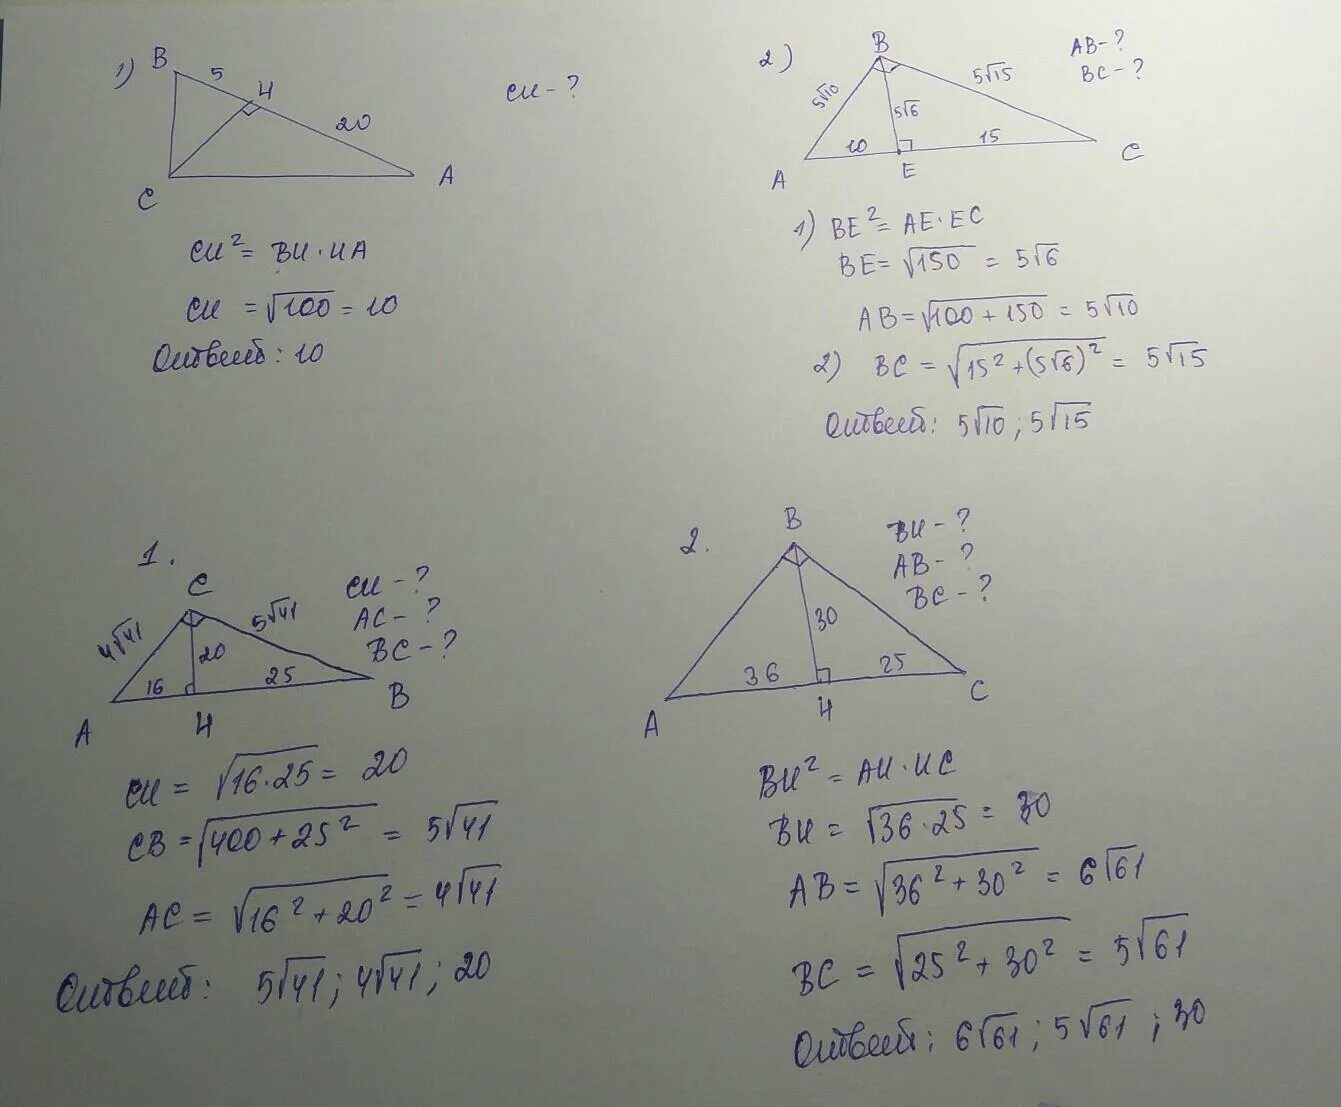 1)
B
5
H
20
C
A
CH - ?
CH² = BH · HA
CH = √100 = 10
Ответ: 10
2)
B
5√10
5√6
5√15
10
15
A
E
C
AB - ?
BC - ?
1) BE² = AE · EC
BE = √150 = 5√6
AB = √100 + 150 = 5√10
2) BC = √15² + (5√6)² = 5√15
Ответ: 5√10 ; 5√15
1.
C
4√41
20
5√41
16
25
A
H
B
CH - ?
AC - ?
BC - ?
CH = √16 · 25 = 20
CB = √400 + 25² = 5√41
AC = √16² + 20² = 4√41
Ответ: 5√41 ; 4√41 ; 20
2.
B
30
36
25
A
H
C
BH - ?
AB - ?
BC - ?
BH² = AH · HC
BH = √36 · 25 = 30
AB = √36² + 30² = 6√61
BC = √25² + 30² = 5√61
Ответ: 6√61 ; 5√61 ; 30